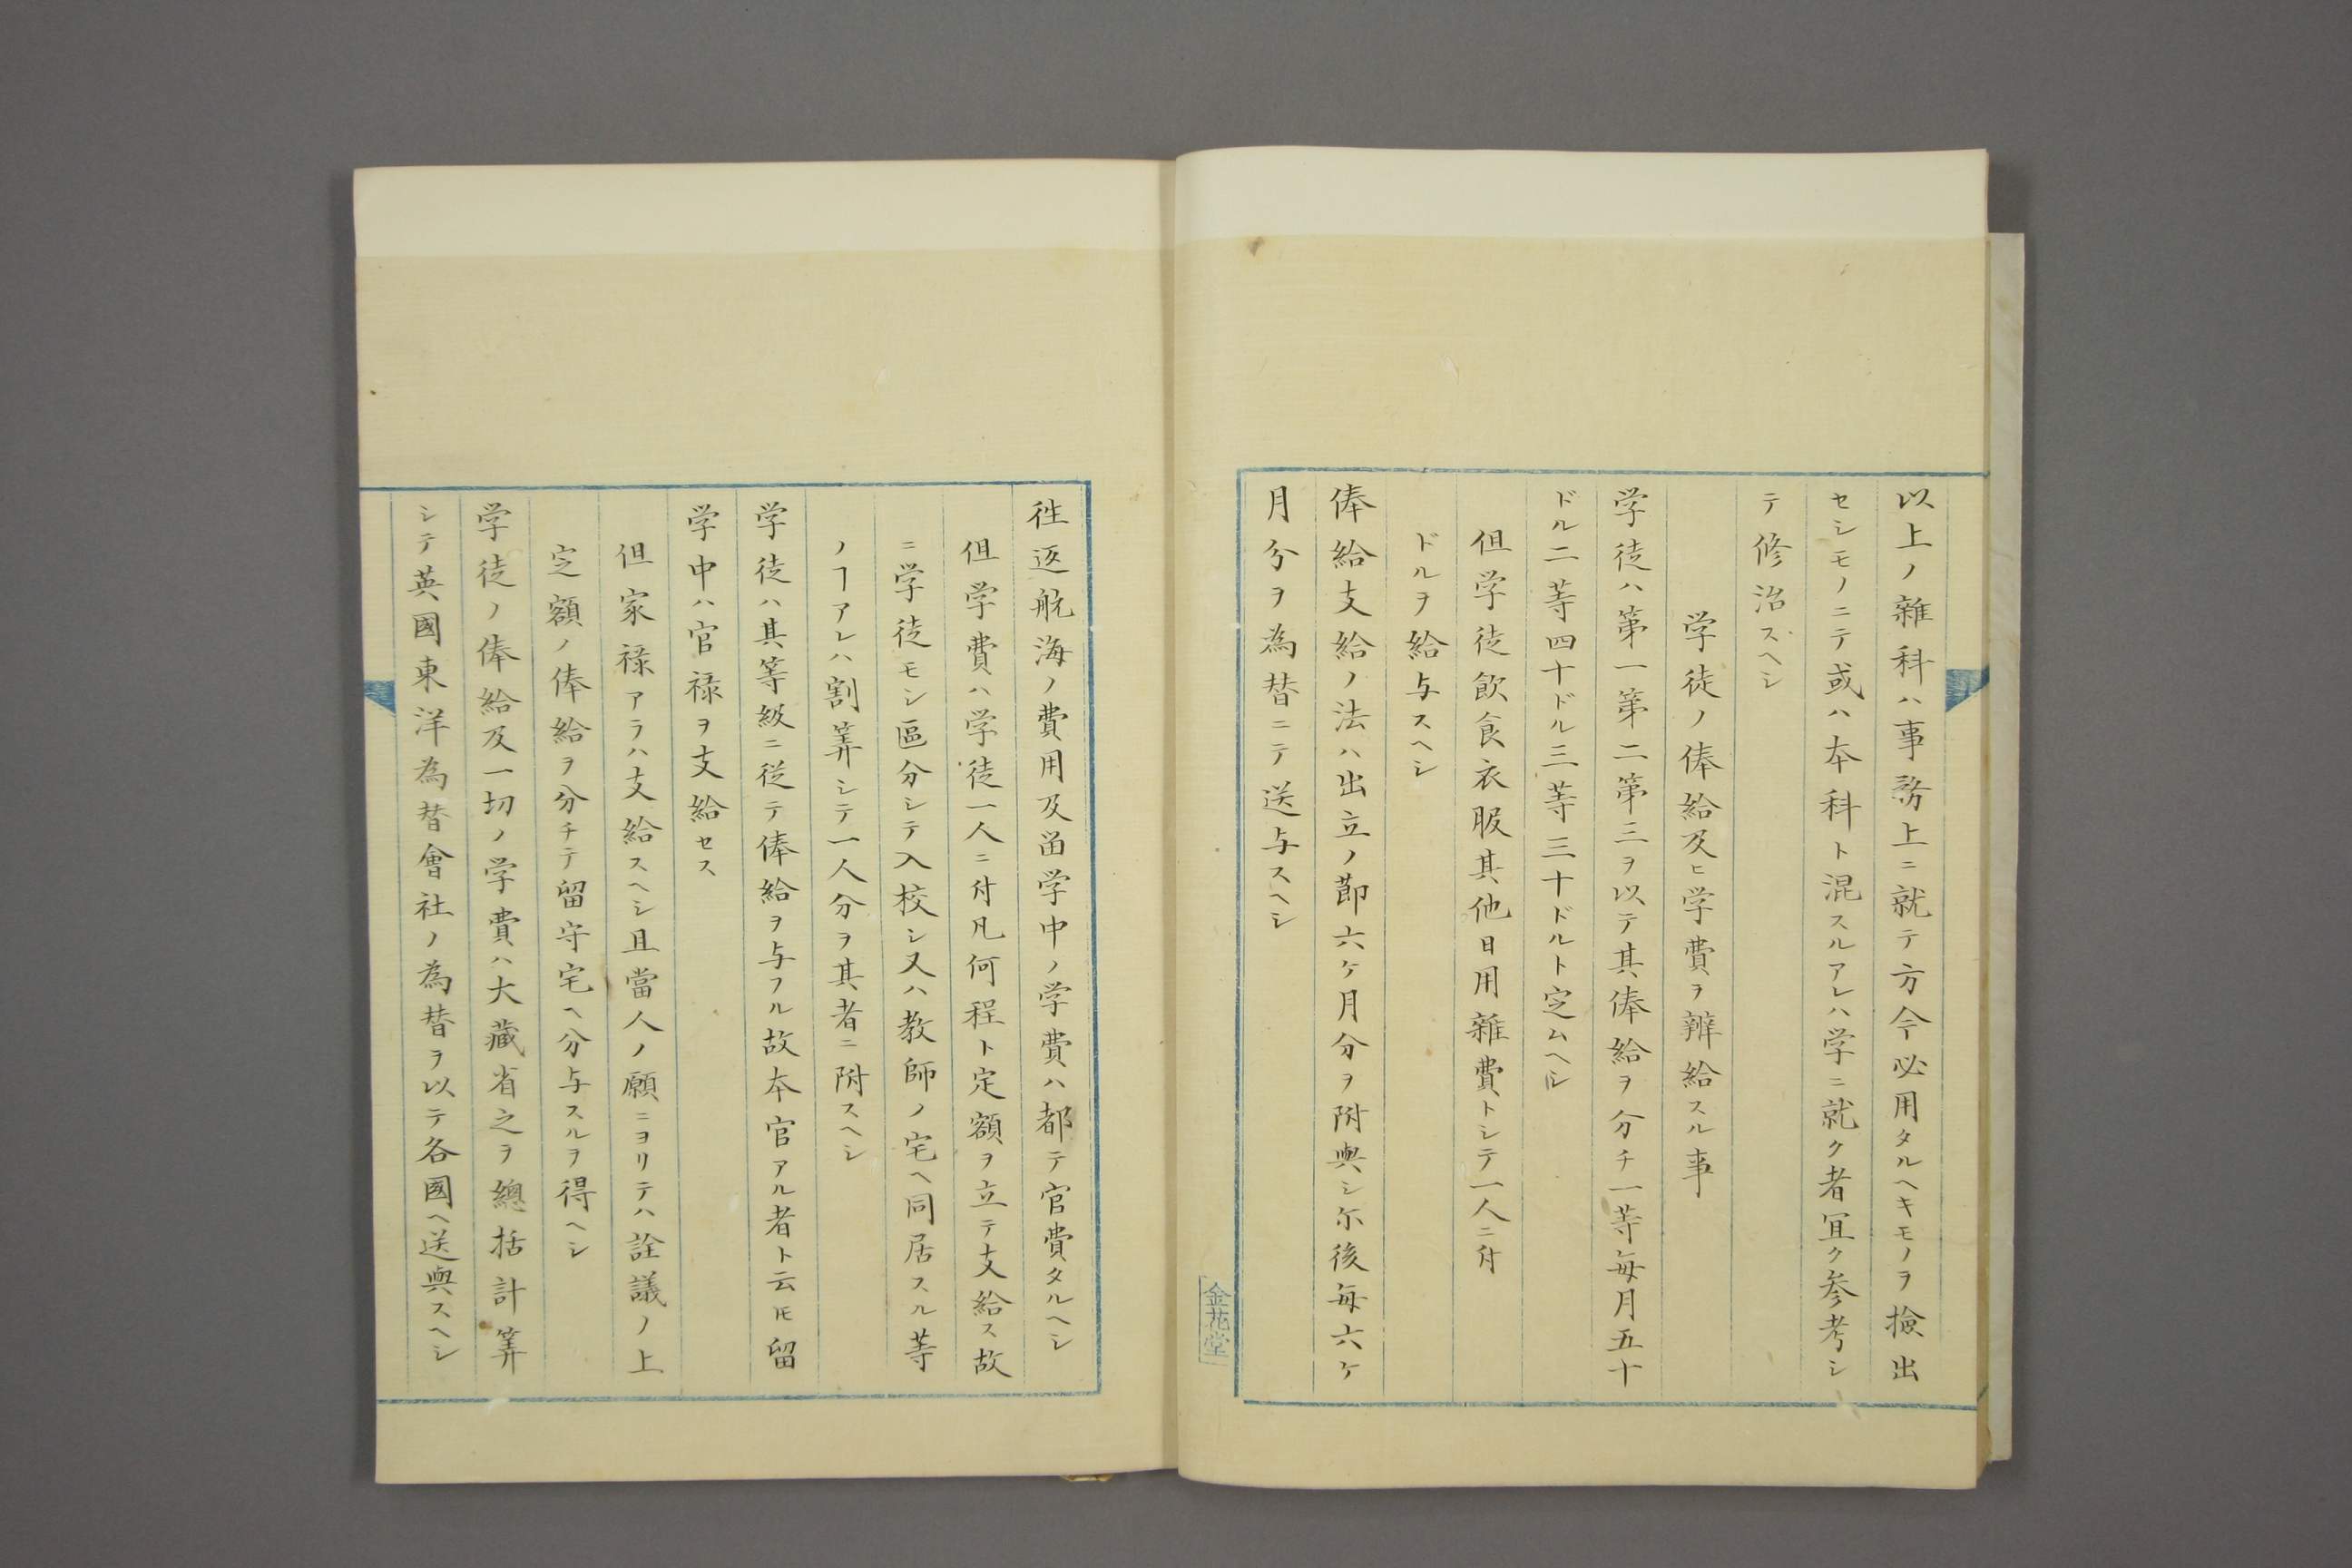 以上ノ雜科ハ事務上ニ就テ方今必用タルヘキモノヲ撿出
セシモノニテ或ハ本科ト混スルアレハ学ニ就ク者冝ク参考シ
テ修治スヘシ
学徒ノ俸給及ヒ学費ヲ辨給スル事
学徒ハ第一第二第三ヲ以テ其俸給ヲ分チ一等毎月五十
ドル二等四十ドル三等三十ドルト定ムヘシ
但学徒飲食衣服其他日用雜費トシテ一人ニ付
ドルヲ給与スヘシ
俸給支給ノ法ハ出立ノ節六ケ月分ヲ附與シ尓後毎六ケ
月分ヲ為替ニテ送与スヘシ
金花堂
徃返航海ノ費用及畄学中ノ学費ハ都テ官費タルヘシ
但学費ハ学徒一人ニ付凡何程ト定額ヲ立テ支給ス故
ニ学徒モシ區分シテ入校シ又ハ教師ノ宅ヘ同居スル等
ノヿアレハ割筭シテ一人分ヲ其者ニ附スヘシ
学徒ハ其等級ニ従テ俸給ヲ与フル故本官アル者ト云𪜈留
学中ハ官禄ヲ支給セス
但家禄アラハ支給スヘシ且當人ノ願ニヨリテハ詮議ノ上
定額ノ俸給ヲ分チテ留守宅ヘ分与スルヲ得ヘシ
学徒ノ俸給及一切ノ学費ハ大藏省之ヲ總括計筭
シテ英國東洋為替會社ノ為替ヲ以テ各國ヘ送與スヘシ